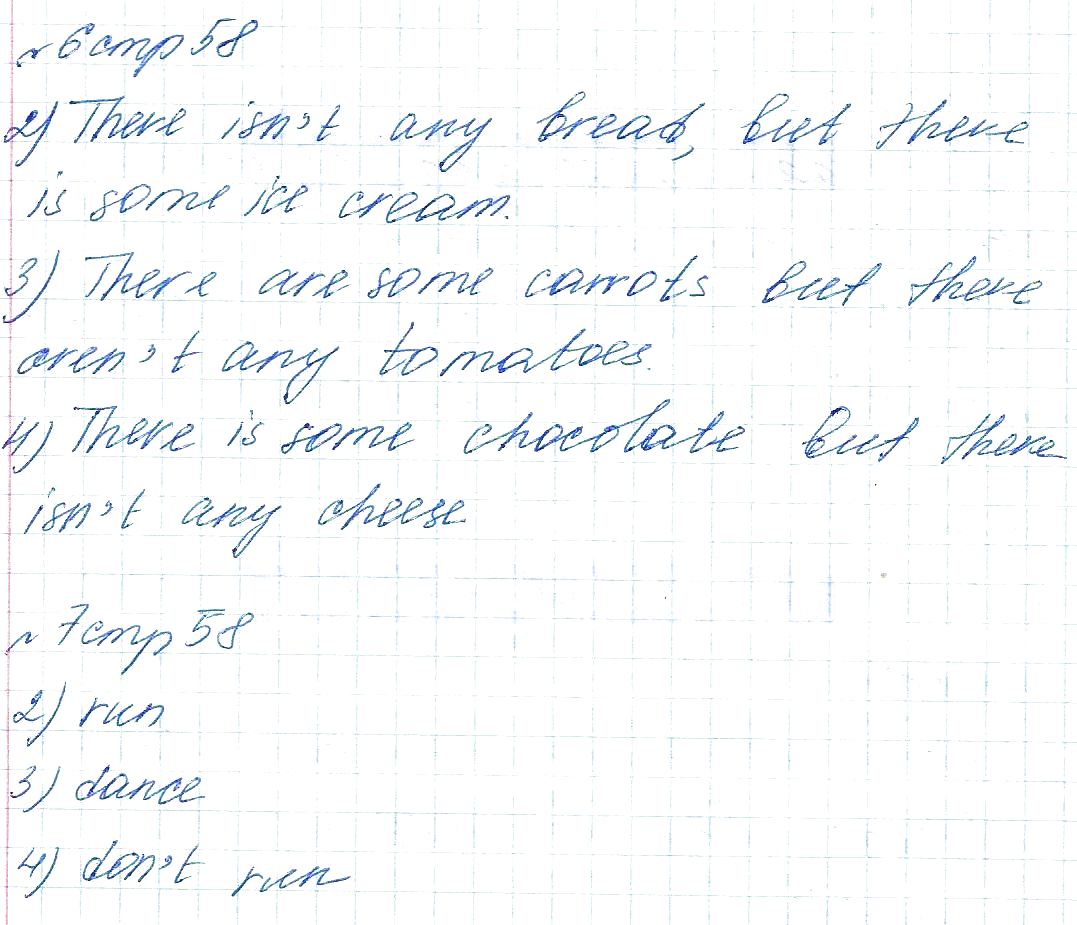 №6 стр 58
2) There isn't any bread, but there
is some ice cream.
3) There are some carrots but there
aren't any tomatoes.
4) There is some chocolate but there
isn't any cheese
№7 стр 58
2) run
3) dance
4) don't run